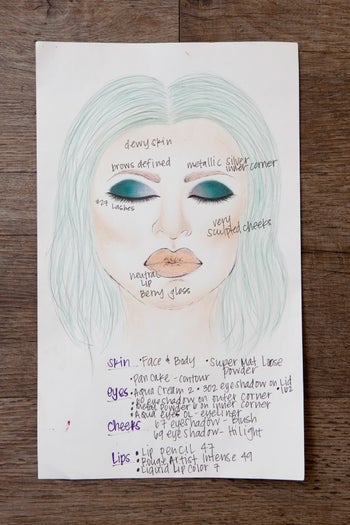 dewy skin
brows defined
metallic silver
inner corner
#29 Lashes
very
sculpted cheeks
neutral
lip
Berry gloss
Skin • Face & Body • Super Mat Loose
Powder
• Pan Cake - contour
eyes • Aqua Cream 2 • 302 eyeshadow on Lid
• 162
eyeshadow on outer corner
• Metal Powder on inner corner
• Aqua eyes OL - eyeliner
Cheeks 67 eyeshadow - Blush
69 eyeshadow - Hilight
Lips • Lip pencil 47
• Rouge Artist Intense 49
• Liquid Lip Color 7